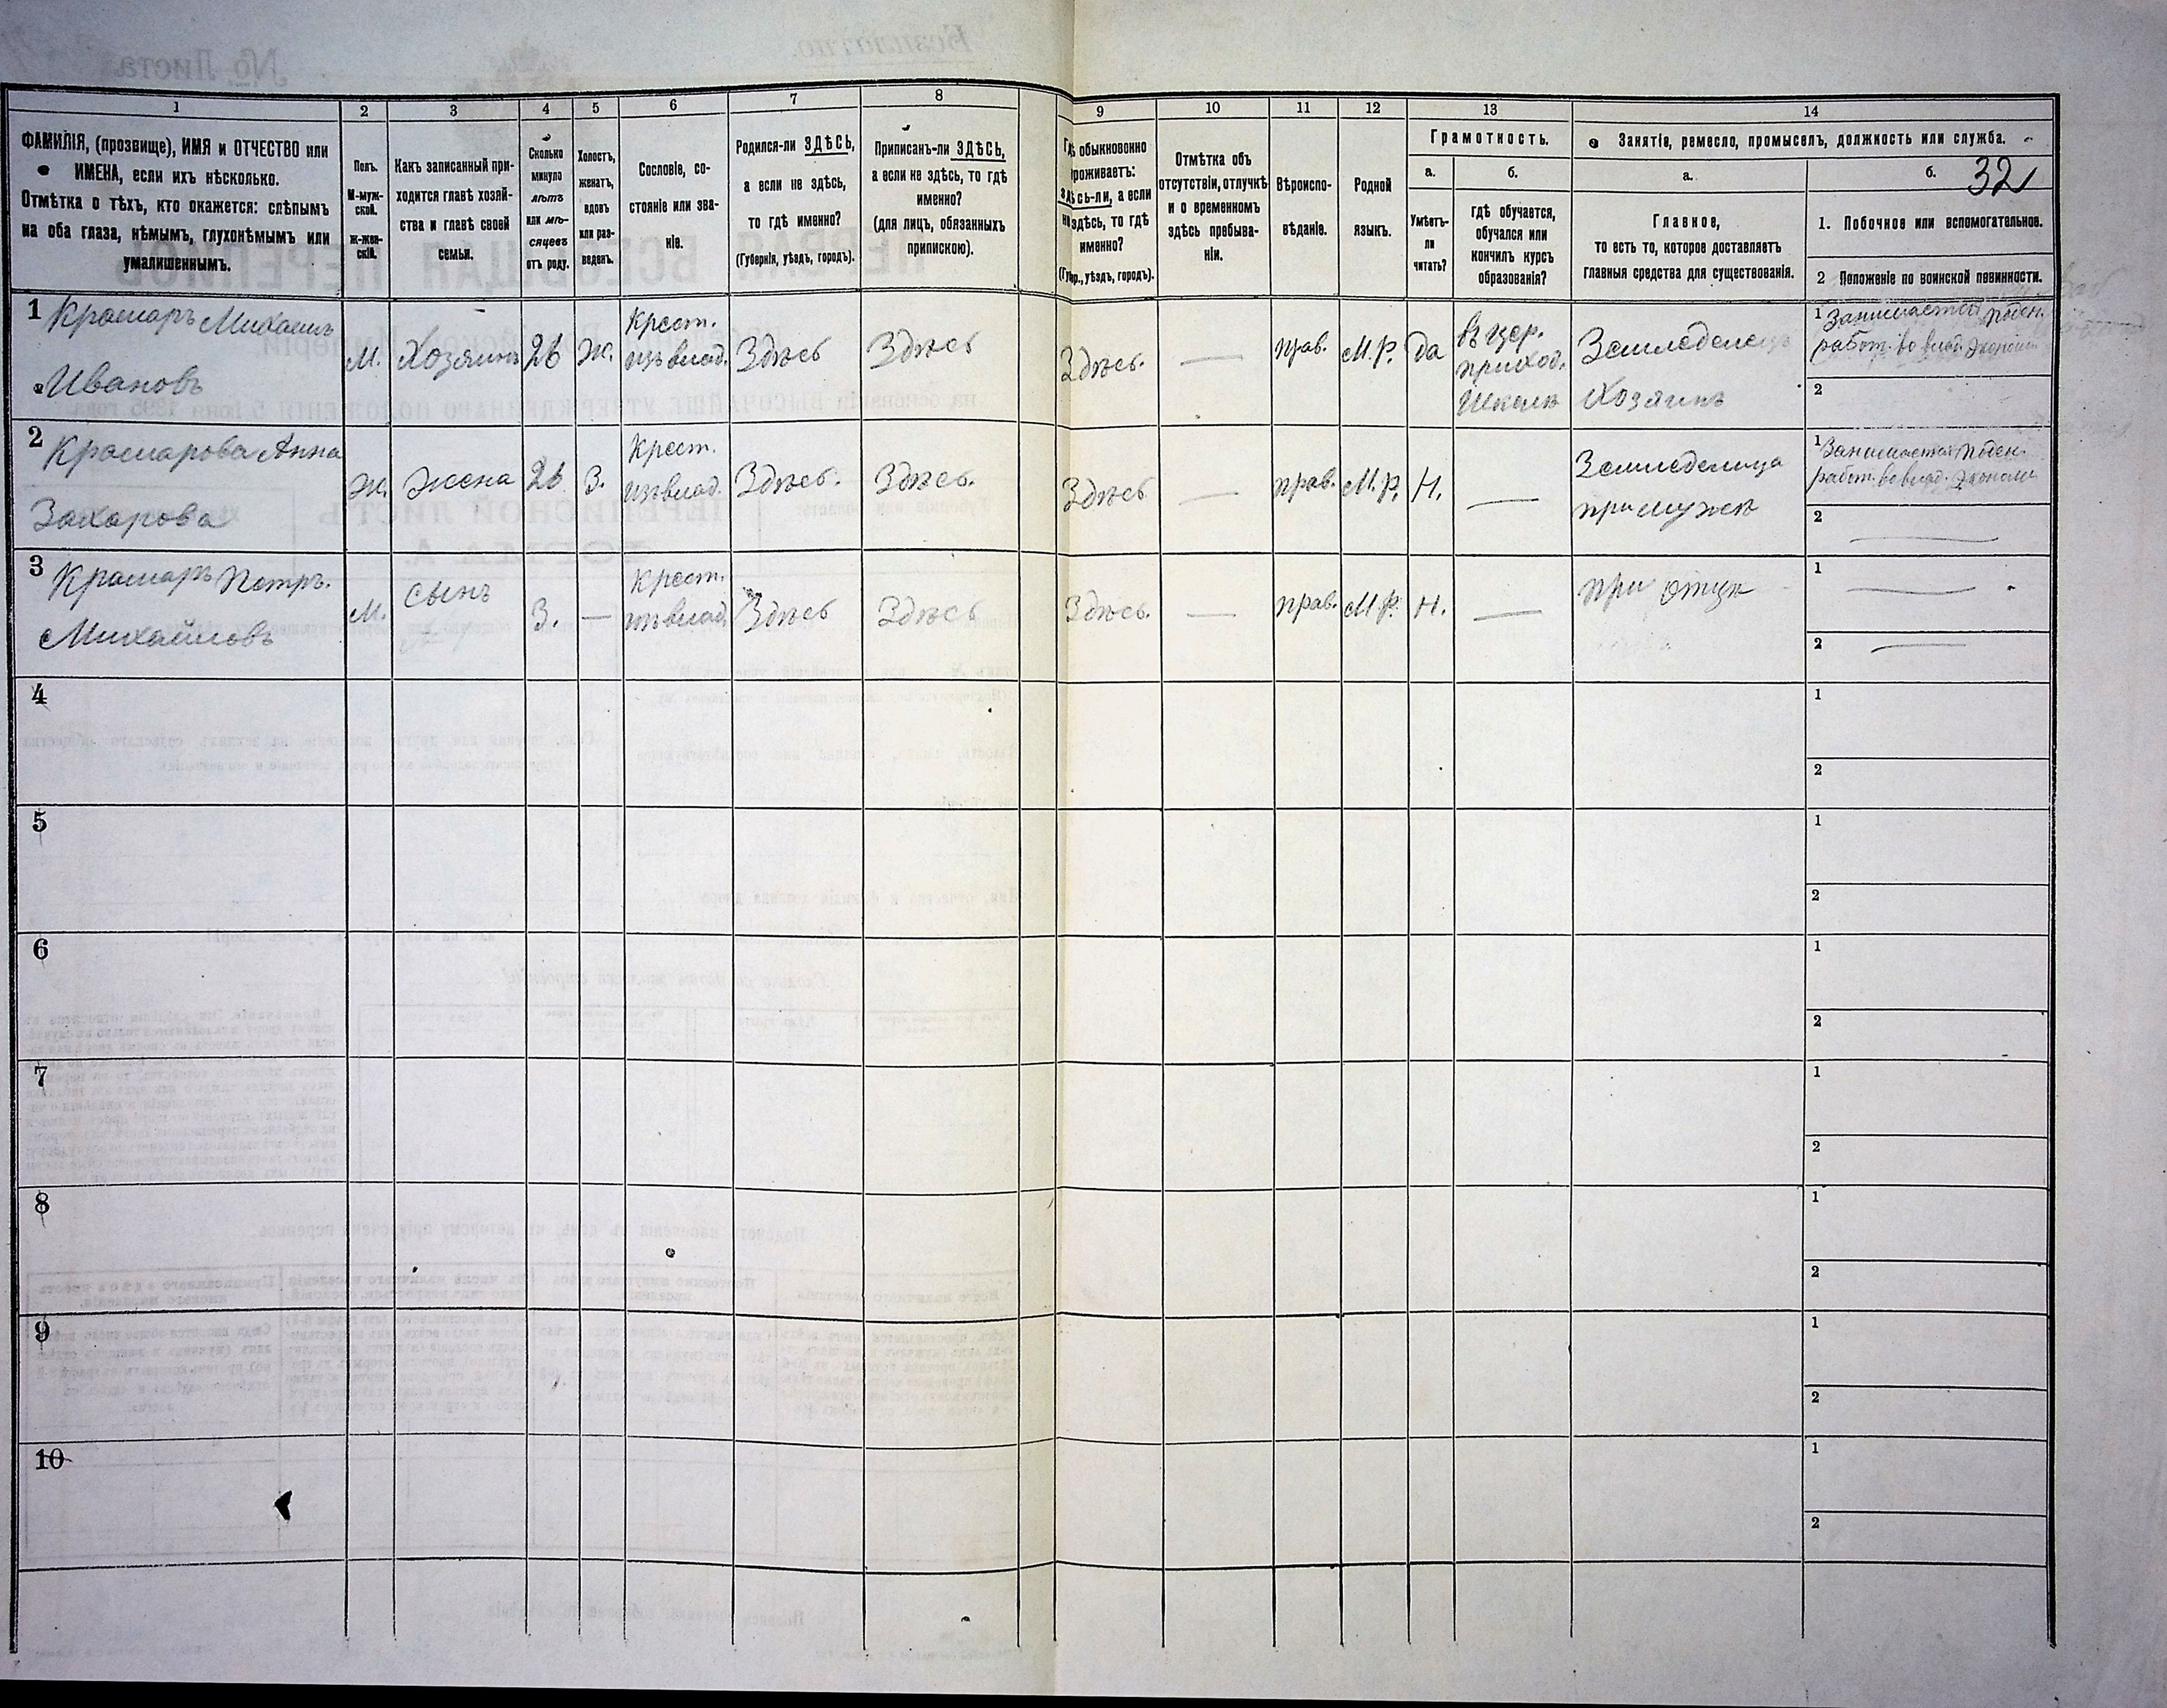 № Листа
Безплатно.
1 2 3 4 5 6 7 8 9 10 11 12 13 14
ФАМИЛІЯ, (прозвище), ИМЯ и ОТЧЕСТВО или
ИМЕНА, если ихъ нѣсколько.
Отмѣтка о тѣхъ, кто окажется: слѣпымъ
на оба глаза, нѣмымъ, глухонѣмымъ или
умалишеннымъ.
Полъ.
М-муж-
ской.
ж-жен-
скій.
Какъ записанный при-
ходится главѣ хозяй-
ства и главѣ своей
семьи.
Сколько
минуло
лѣтъ
или мѣ-
сяцевъ
отъ роду.
Холостъ,
женатъ,
вдовъ
или раз-
веденъ.
Сословіе, со-
стояніе или зва-
ніе.
Родился-ли ЗДѢСЬ,
а если не здѣсь,
то гдѣ именно?
(Губернія, уѣздъ, городъ).
Приписанъ-ли ЗДѢСЬ,
а если не здѣсь, то гдѣ
именно?
(для лицъ, обязанныхъ
припискою).
Гдѣ обыкновенно
проживаетъ:
здѣсь-ли, а если
не здѣсь, то гдѣ
именно?
(Губ., уѣздъ, городъ).
Отмѣтка объ
отсутствіи, отлучкѣ
и о временномъ
здѣсь пребыва-
ніи.
Вѣроиспо-
вѣданіе.
Родной
языкъ.
Грамотность.
а.
Умѣетъ-
ли
читать?
б.
гдѣ обучается,
обучался или
кончилъ курсъ
образованія?
Занятіе, ремесло, промыселъ, должность или служба.
а.
Главное,
то есть то, которое доставляетъ
главныя средства для существованія.
б.
32
1. Побочное или вспомогательное.
2 Положеніе по воинской повинности.
1 Крамаръ Михаилъ
Ивановъ
М.
Хозяинъ
26
Ж.
Крест.
изъ влад.
Здѣсь
Здѣсь
Здѣсь.
—
прав.
М.р.
да
въ цер.
приход.
школѣ
Земледелецъ
Хозяинъ
1 Занимается поден.
работ. во влад. экономіи
2
2 Крамарова Анна
Захарова
Ж.
Жена
26
З.
Крест.
изъ влад.
Здѣсь.
Здѣсь.
Здѣсь
—
прав.
М.р.
Н.
—
Земледелица
при мужѣ
1 Занимается поден.
работ. во влад. экономіи
2 —
3 Крамаръ Петръ.
Михайловъ
М.
сынъ
3.
—
Крест.
изъ влад.
Здѣсь
Здѣсь
Здѣсь.
—
прав.
М.р.
Н.
—
при отцѣ
1 —
2 —
4
1
2
5
1
2
6
1
2
7
1
2
8
1
2
9
1
2
10
1
2